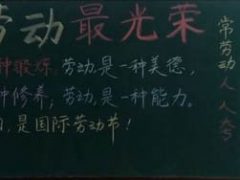 劳动最光荣
种锻炼,劳动,是一种美德,
种修养,劳动,是一种能力。
日,是国际劳动节!
常劳动 人人夸